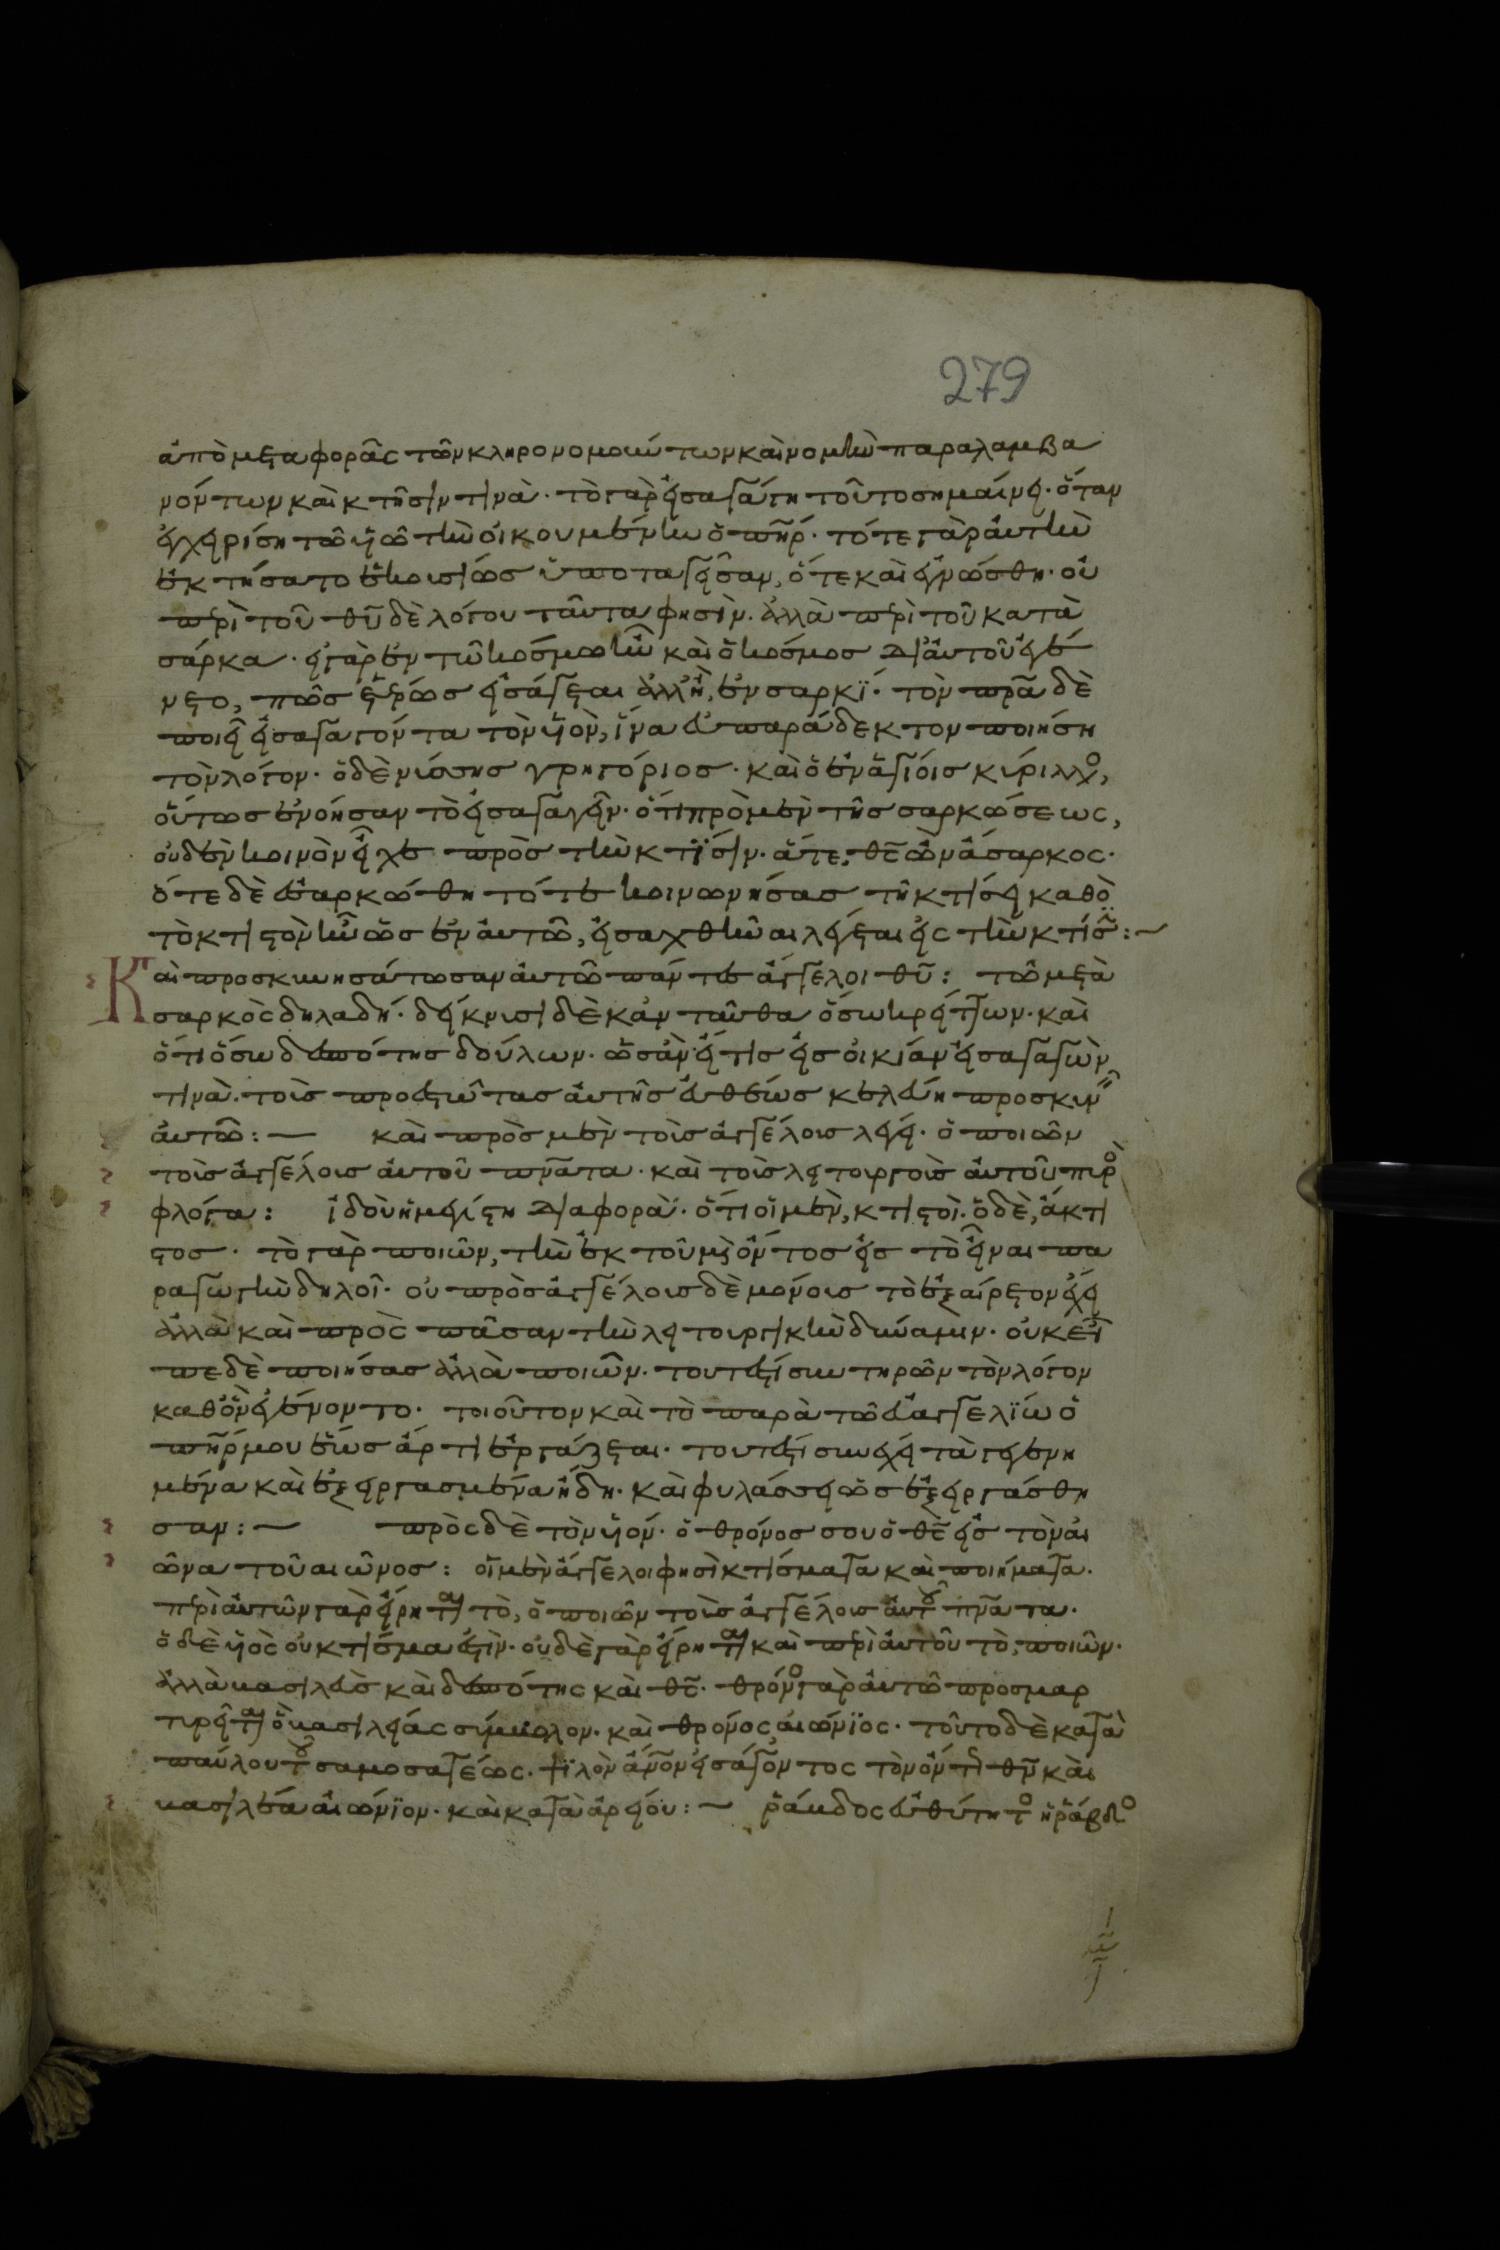 279
ἀπὸ μεταφορᾶς τῶν κληρονομούντων καὶ νομὴν παραλαμβα
νόντων καὶ κτῆσίν τινα. τὸ γὰρ εἰσαγάγη τοῦτο σημαίνει. ὅταν
ἐγχειρίση τῶ υἱῶ τὴν οἰκουμένην ὁ πηρ. τότε γὰρ αὐτὴν
ἐκτήσατο ἑκουσίως ὑποταγεῖσαν, ὅτε καὶ ἐγνώσθη. οὐ
περὶ τοῦ θυ δὲ λόγου ταῦτα φησίν. ἀλλὰ περὶ τοῦ κατὰ
σάρκα. εἰ γὰρ ἐν τῶ κόσμω ἦν καὶ ὁ κόσμος δι αὐτοῦ ἐγέ
νετο, πῶς ἑτέρως εἰσάγεται ἀλλ ἢ ἐν σαρκί. τὸν πρα δὲ
ποιεῖ εἰσαγαγόντα τὸν υἱὸν, ἵνα εὐπαράδεκτον ποιήση
τὸν λόγον. ὁ δὲ νύσσης γρηγόριος. καὶ ὁ ἐν ἁγίοις κύριλλος,
οὕτως ἐνόησαν τὸ εἰσαγαγεῖν. ὅτι πρὸ μὲν τῆς σαρκώσεως,
οὐδὲν κοινὸν εἶχε πρὸς τὴν κτίσιν. ἅτε θς ὢν ἄσαρκος.
ὅτε δὲ ἐσαρκώθη τότε κοινωνήσας τῆ κτίσει καθὸ
τὸ κτιστὸν ἦν ὡς ἐν αὐτῶ, εἰσαχθῆναι λέγεται εἰς τὴν κτίσιν:
Καὶ προσκυνησάτωσαν αὐτῶ πάντες ἄγγελοι θυ: τῶ μετὰ
σαρκὸς δηλαδή. δείκνυσι δὲ κἀνταῦθα ὅσω κρείττων. καὶ
ὅτι ὅσω δεσπότης δούλων. ὡσὰν εἴ τις εἰς οἰκίαν εἰσαγαγὼν
τινὰ. τοὺς προεστῶτας αὐτῆς εὐθέως κελεύη προσκυνεῖν
αὐτῶ: καὶ πρὸς μὲν τοὺς ἀγγέλους λέγει. ὁ ποιῶν
τοὺς ἀγγέλους αὐτοῦ πνατα. καὶ τοὺς λειτουργοὺς αὐτοῦ πυρὸς
φλόγα: ἰδοὺ ἡ μεγίστη διαφορά. ὅτι οἱ μὲν, κτιστοὶ. ὁ δὲ, ἄκτι
στος. τὸ γὰρ ποιῶν, τὴν ἐκ τοῦ μὴ ὄντος εἰς τὸ εἶναι πα
ραγωγὴν δηλοῖ. οὐ πρὸς ἀγγέλους δὲ μόνους τὸ ἐξαίρετον ἔχει
ἀλλὰ καὶ πρὸς πᾶσαν τὴν λειτουργικὴν δύναμιν. οὐκ εἶ
πε δὲ ποιήσας ἀλλὰ ποιῶν. τουτέστι συντηρῶν τὸν λόγον
καθ ὃν ἐγένοντο. τοιοῦτον καὶ τὸ παρὰ τῶ εὐαγγελίω ὁ
πηρ μου ἕως ἄρτι ἐργάζεται. τουτέστι συνέχει τὰ γεγενη
μένα καὶ ἐξειργασμένα ἤδη. καὶ φυλάσσει ὡς ἐξειργάσθη
σαν: πρὸς δὲ τὸν υἱόν. ὁ θρόνος σου ὁ θς εἰς τὸν αἰ
ῶνα τοῦ αἰῶνος: οἱ μὲν ἄγγελοι φησὶ κτίσματα καὶ ποιήματα.
περὶ αὐτῶν γὰρ εἴρηται τὸ, ὁ ποιῶν τοὺς ἀγγέλους αὐτοῦ πνατα.
ὁ δὲ υἱὸς οὐ κτίσμα ἐστὶν. οὐδὲ γὰρ εἴρηται καὶ περὶ αὐτοῦ τὸ, ποιῶν.
ἀλλὰ βασιλεὺς καὶ δεσπότης καὶ θς. θρόνος γὰρ αὐτῶ προσμαρ
τυρεῖται ὁ βασιλείας σύμβολον. καὶ θρόνος αἰώνιος. τοῦτο δὲ κατὰ
παύλου τοῦ σαμοσατέως. ψιλὸν ἄνον εἰσάγοντος τὸν ὄντι θν καὶ
βασιλέα αἰώνιον. καὶ κατὰ ἀρείου: ῥάβδος εὐθύτητος ἡ ῥάβδος